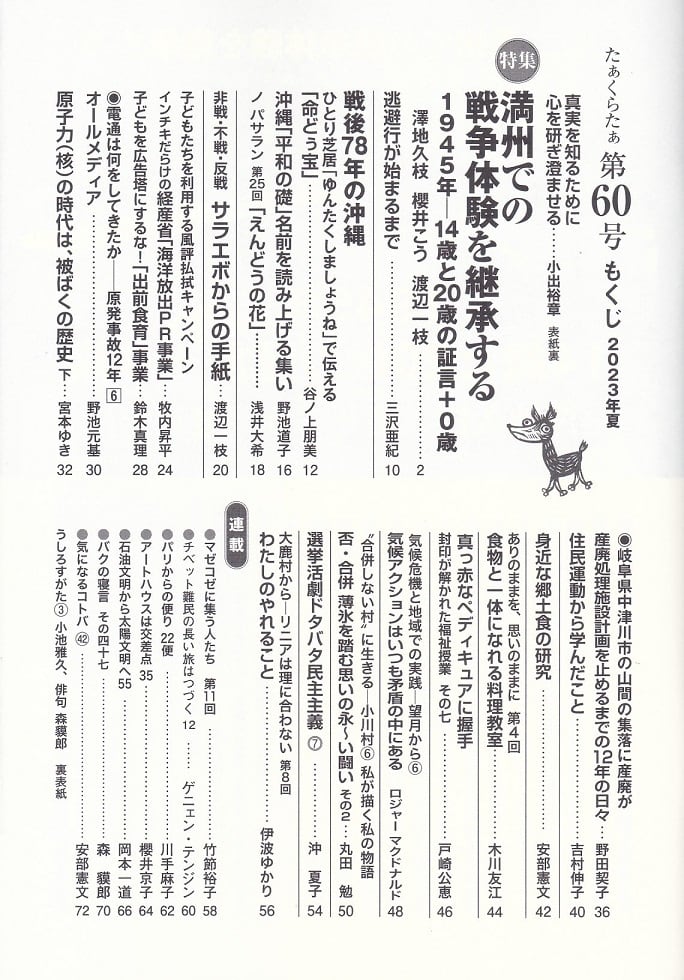 たぁくらたぁ 第60号 もくじ 2023年夏
真実を知るために
心を研ぎ澄ませる……小出裕章 表紙裏
特集
満州での
戦争体験を継承する
1945年―14歳と20歳の証言+0歳
澤地久枝 櫻井こう 渡辺一枝……2
逃避行が始まるまで……三沢亜紀 10
戦後78年の沖縄
ひとり芝居「ゆんたくしましょうね」で伝える
「命どぅ宝」……谷ノ上朋美 12
沖縄「平和の礎」名前を読み上げる集い 野池道子 16
ノ パサラン 第25回「えんどうの花」……浅井大希 18
非戦・不戦・反戦 サラエボからの手紙…渡辺一枝 20
子どもたちを利用する風評払拭キャンペーン
インチキだらけの経産省「海洋放出PR事業」…牧内昇平 24
子どもを広告塔にするな!「出前食育」事業…鈴木真理 28
●電通は何をしてきたか――原発事故12年 6
オールメディア……野池元基 30
原子力(核)の時代は、被ばくの歴史 下…宮本ゆき 32
●岐阜県中津川市の山間の集落に産廃が
産廃処理施設計画を止めるまでの12年の日々…野田契子 36
住民運動から学んだこと……吉村伸子 40
身近な郷土食の研究……安部憲文 42
ありのままを、思いのままに 第4回
食物と一体になれる料理教室……木川友江 44
真っ赤なペディキュアに握手
封印が解かれた福祉授業 その七……戸崎公恵 46
気候危機と地域での実践―望月から⑥
気候アクションはいつも矛盾の中にある ロジャー マクドナルド 48
“合併しない村”に生きる―小川村⑥ 私が描く私の物語
否・合併 薄氷を踏む思いの永〜い闘い その2…丸田 勉 50
選挙活劇ドタバタ民主主義 ⑦……沖 夏子 54
大鹿村から―リニアは理に合わない 第8回
わたしのやれること……伊波ゆかり 56
連載
●マゼコゼに集う人たち 第11回……竹節裕子 58
●チベット難民の長い旅はつづく 12……ゲニェン・テンジン 60
●パリからの便り 22便……川手麻子 62
●アートハウスは交差点 35……櫻井京子 64
●石油文明から太陽文明へ 55……岡本一道 66
●バクの寝言 その四十七……森 貘郎 70
●気になるコトバ ㊷……安部憲文 72
うしろすがた③ 小池雅久、俳句 森貘郎 裏表紙